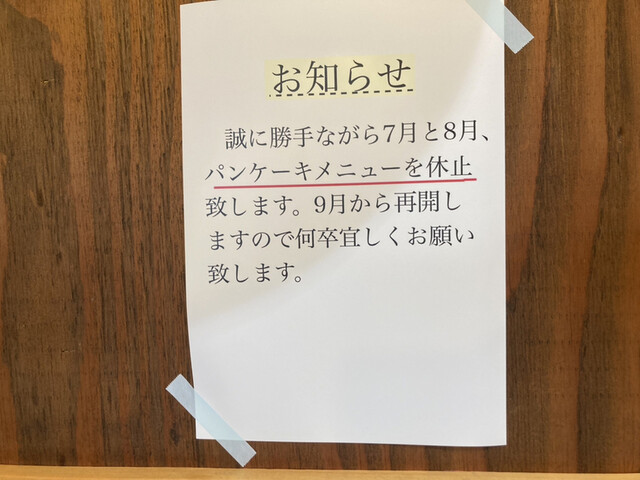 お知らせ
誠に勝手ながら7月と8月、
パンケーキメニューを休止
致します。9月から再開し
ますので何卒宜しくお願い
致します。